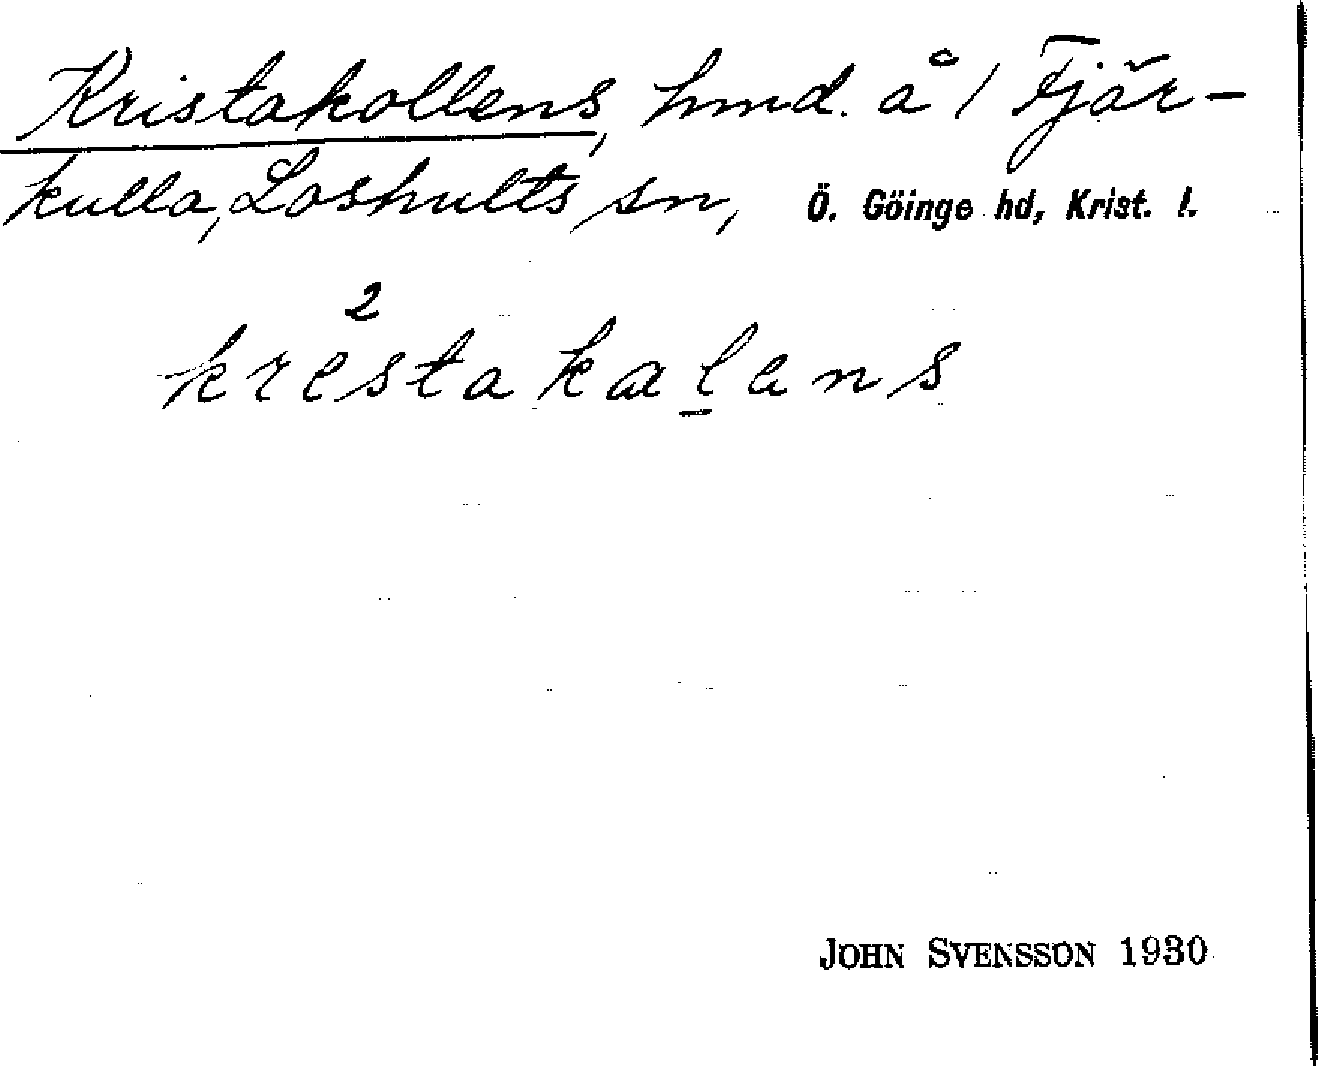 Kristakollens, hmd. å 1 Fjär-
kulla, Loshults sn, Ö. Göinge hd, Krist. l.
2
krestakalens
JOHN SVENSSON 1930